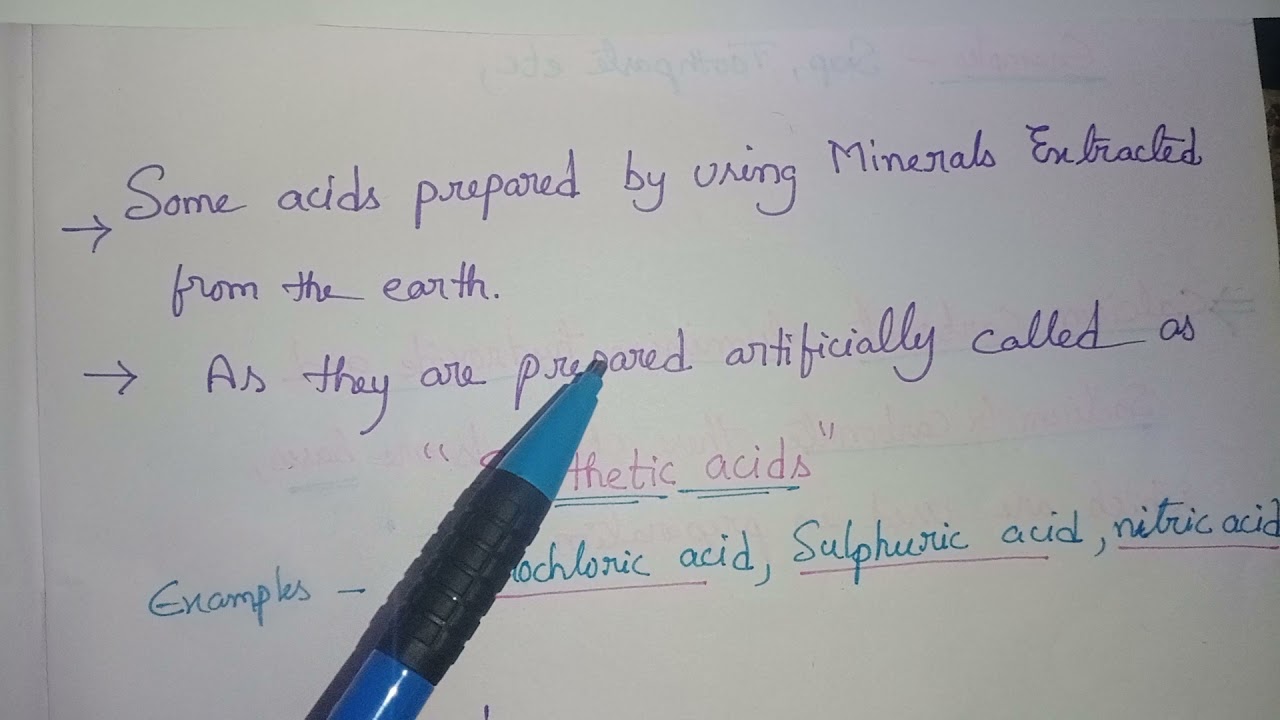 → Some acids prepared by using Minerals Extracted
from the earth.
→ As they are prepared artificially called as
"thetic acids"
Examples - ochloric acid, Sulphuric acid, nitric acid